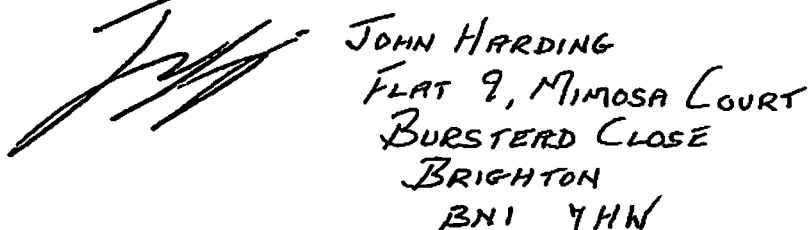 JOHN HARDING
FLAT 9, MIMOSA COURT
BURSTEAD CLOSE
BRIGHTON
BN1 7HW